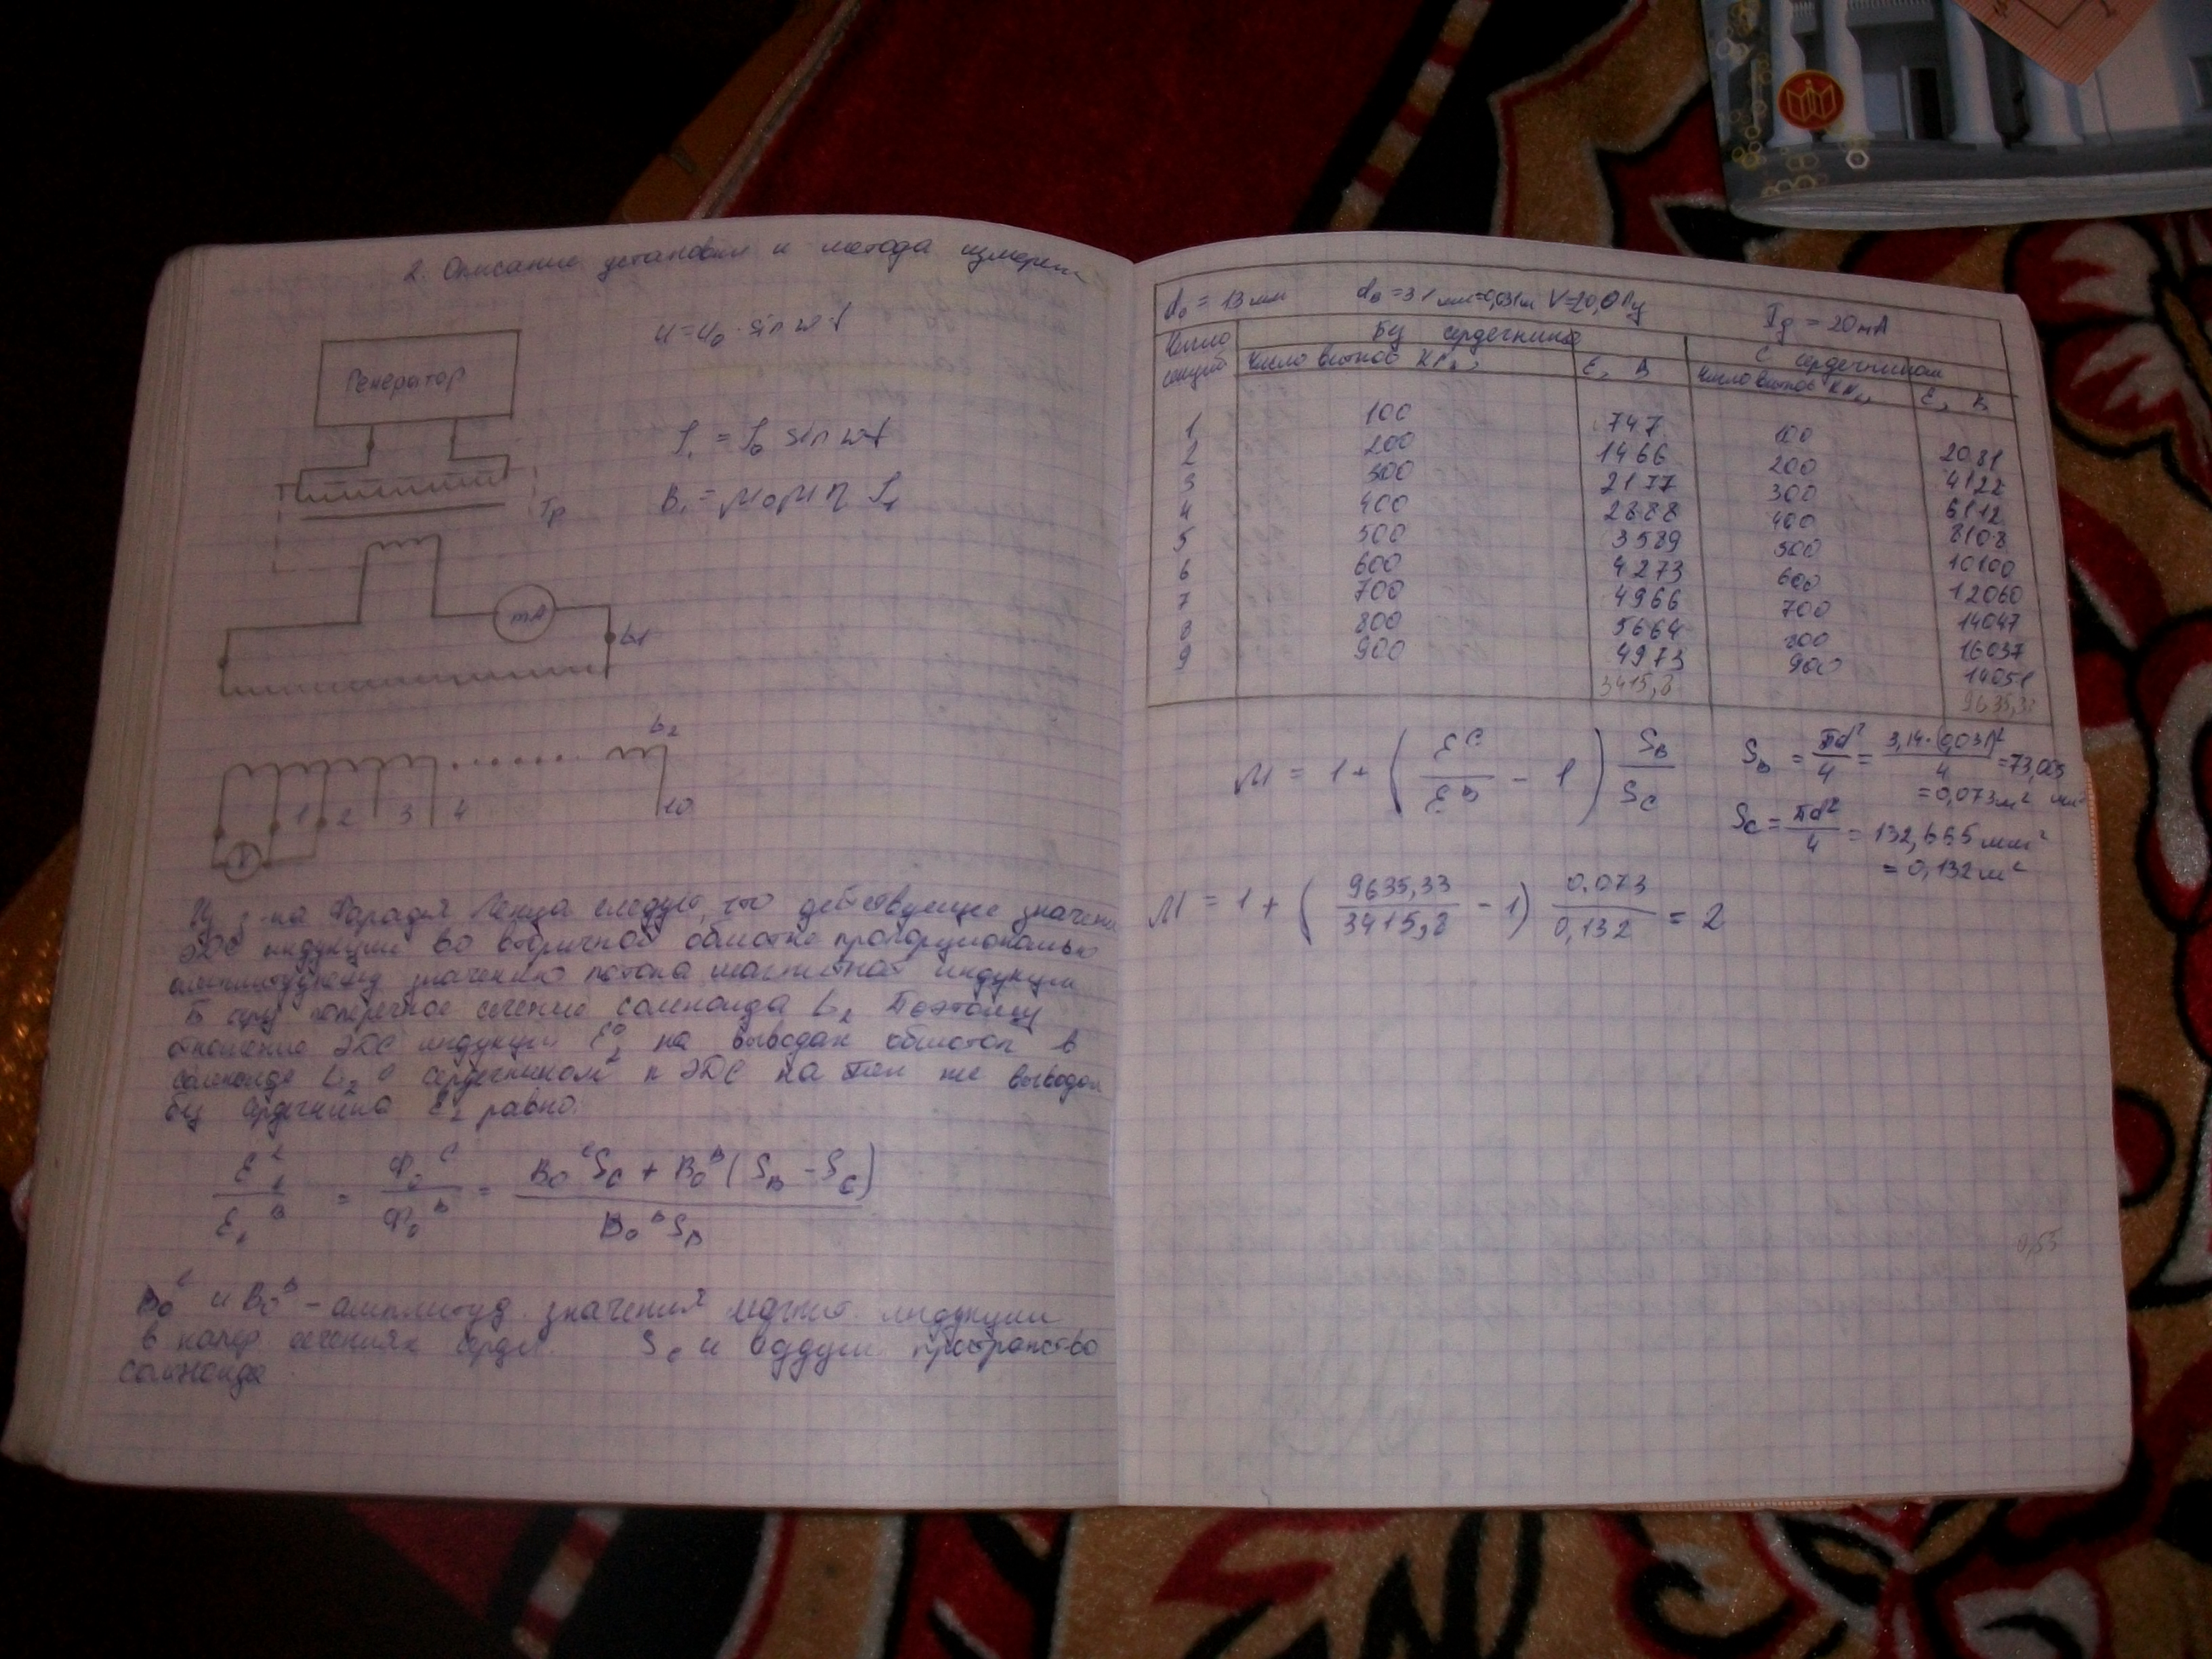 2. Описание установки и метода измерен
u=u₀·sin wt
Генератор
I₁ = I₀ sin wt
B₁ = μ₀μ n I₁
Тр
mA
L1
L₂
1 2 3 4 10
V
з-на Фарадея Ленца следует, что действующее значени
ЭДС индукции во вторичной обмотке пропорционально
амплитудному значению потока магнитной индукции
поперечное сечение соленоида L₂ Поэтому
отношение ЭДС индукции на выводах обмоток в
соленоиде L₂ с сердечником к ЭДС на тех же выводах
без сердечника равно.
= Ф₀ᶜ/Ф₀ᴮ = (B₀ᶜSc + B₀ᴮ(Sв - Sc))/(B₀ᴮSв)
B₀ᶜ и B₀ᴮ - амплитуд. значения магнит. индукции
в попер. сечениях серде. Sc и воздуш. пространство
соленоида
d₀ = 13 мм dв = 31 мм=0,031м V=20,0 Гц Iд = 20mA
Число секций Без сердечника С сердечником
Число витков KN₂, Ɛ, В Число витков KN₂, Ɛ, В
1 100 747 100 2081
2 200 1466 200 4122
3 300 2177 300 6112
4 400 2888 400 8108
5 500 3589 500 10100
6 600 4273 600 12060
7 700 4966 700 14047
8 800 5664 800 16037
9 900 4973 900 14051
3415,8 9635,33
M = 1 + (Ɛᶜ/Ɛᴮ - 1) Sв/Sc
Sв = πd²/4 = 3,14·0,031²/4 =
= 0,073м²
Sc = πd²/4 = 132,665 мм²
= 0,132 м²
M = 1 + (9635,33/3415,8 - 1) 0.073/0,132 = 2
0,55